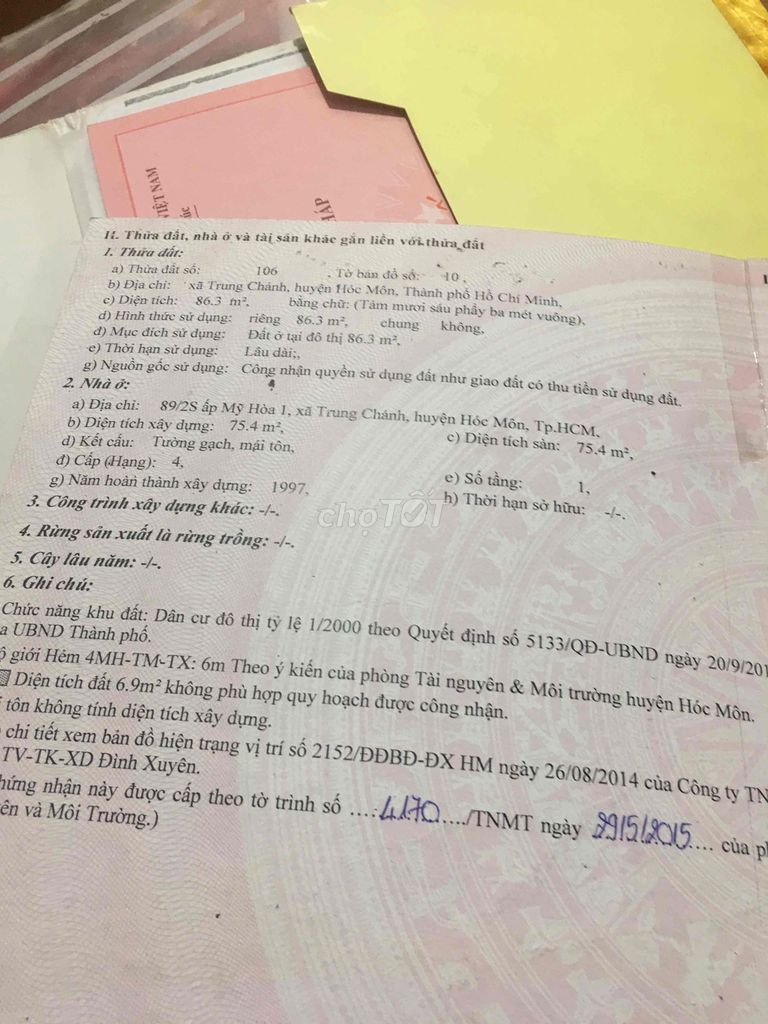 VIỆT NAM
II. Thửa đất, nhà ở và tài sản khác gắn liền với thửa đất
1. Thửa đất:
a) Thửa đất số: 106 , Tờ bản đồ số: 10 ,
b) Địa chỉ: xã Trung Chánh, huyện Hóc Môn, Thành phố Hồ Chí Minh,
c) Diện tích: 86.3 m², bằng chữ: (Tám mươi sáu phẩy ba mét vuông),
d) Hình thức sử dụng: riêng 86.3 m², chung không,
đ) Mục đích sử dụng: Đất ở tại đô thị 86.3 m²,
e) Thời hạn sử dụng: Lâu dài;,
g) Nguồn gốc sử dụng: Công nhận quyền sử dụng đất như giao đất có thu tiền sử dụng đất.
2. Nhà ở:
a) Địa chỉ: 89/2S ấp Mỹ Hòa 1, xã Trung Chánh, huyện Hóc Môn, Tp.HCM,
b) Diện tích xây dựng: 75.4 m², c) Diện tích sàn: 75.4 m²,
d) Kết cấu: Tường gạch, mái tôn,
đ) Cấp (Hạng): 4, e) Số tầng: 1,
g) Năm hoàn thành xây dựng: 1997, h) Thời hạn sở hữu: -/-.
3. Công trình xây dựng khác: -/-.
chợTỐT
4. Rừng sản xuất là rừng trồng: -/-.
5. Cây lâu năm: -/-.
6. Ghi chú:
Chức năng khu đất: Dân cư đô thị tỷ lệ 1/2000 theo Quyết định số 5133/QĐ-UBND ngày 20/9/201
a UBND Thành phố.
ộ giới Hẻm 4MH-TM-TX: 6m Theo ý kiến của phòng Tài nguyên & Môi trường huyện Hóc Môn.
Diện tích đất 6.9m² không phù hợp quy hoạch được công nhận.
i tôn không tính diện tích xây dựng.
chi tiết xem bản đồ hiện trạng vị trí số 2152/ĐĐBĐ-ĐX HM ngày 26/08/2014 của Công ty TN
TV-TK-XD Đình Xuyên.
hứng nhận này được cấp theo tờ trình số ....4170..../TNMT ngày 29/5/2015.... của ph
ên và Môi Trường.)